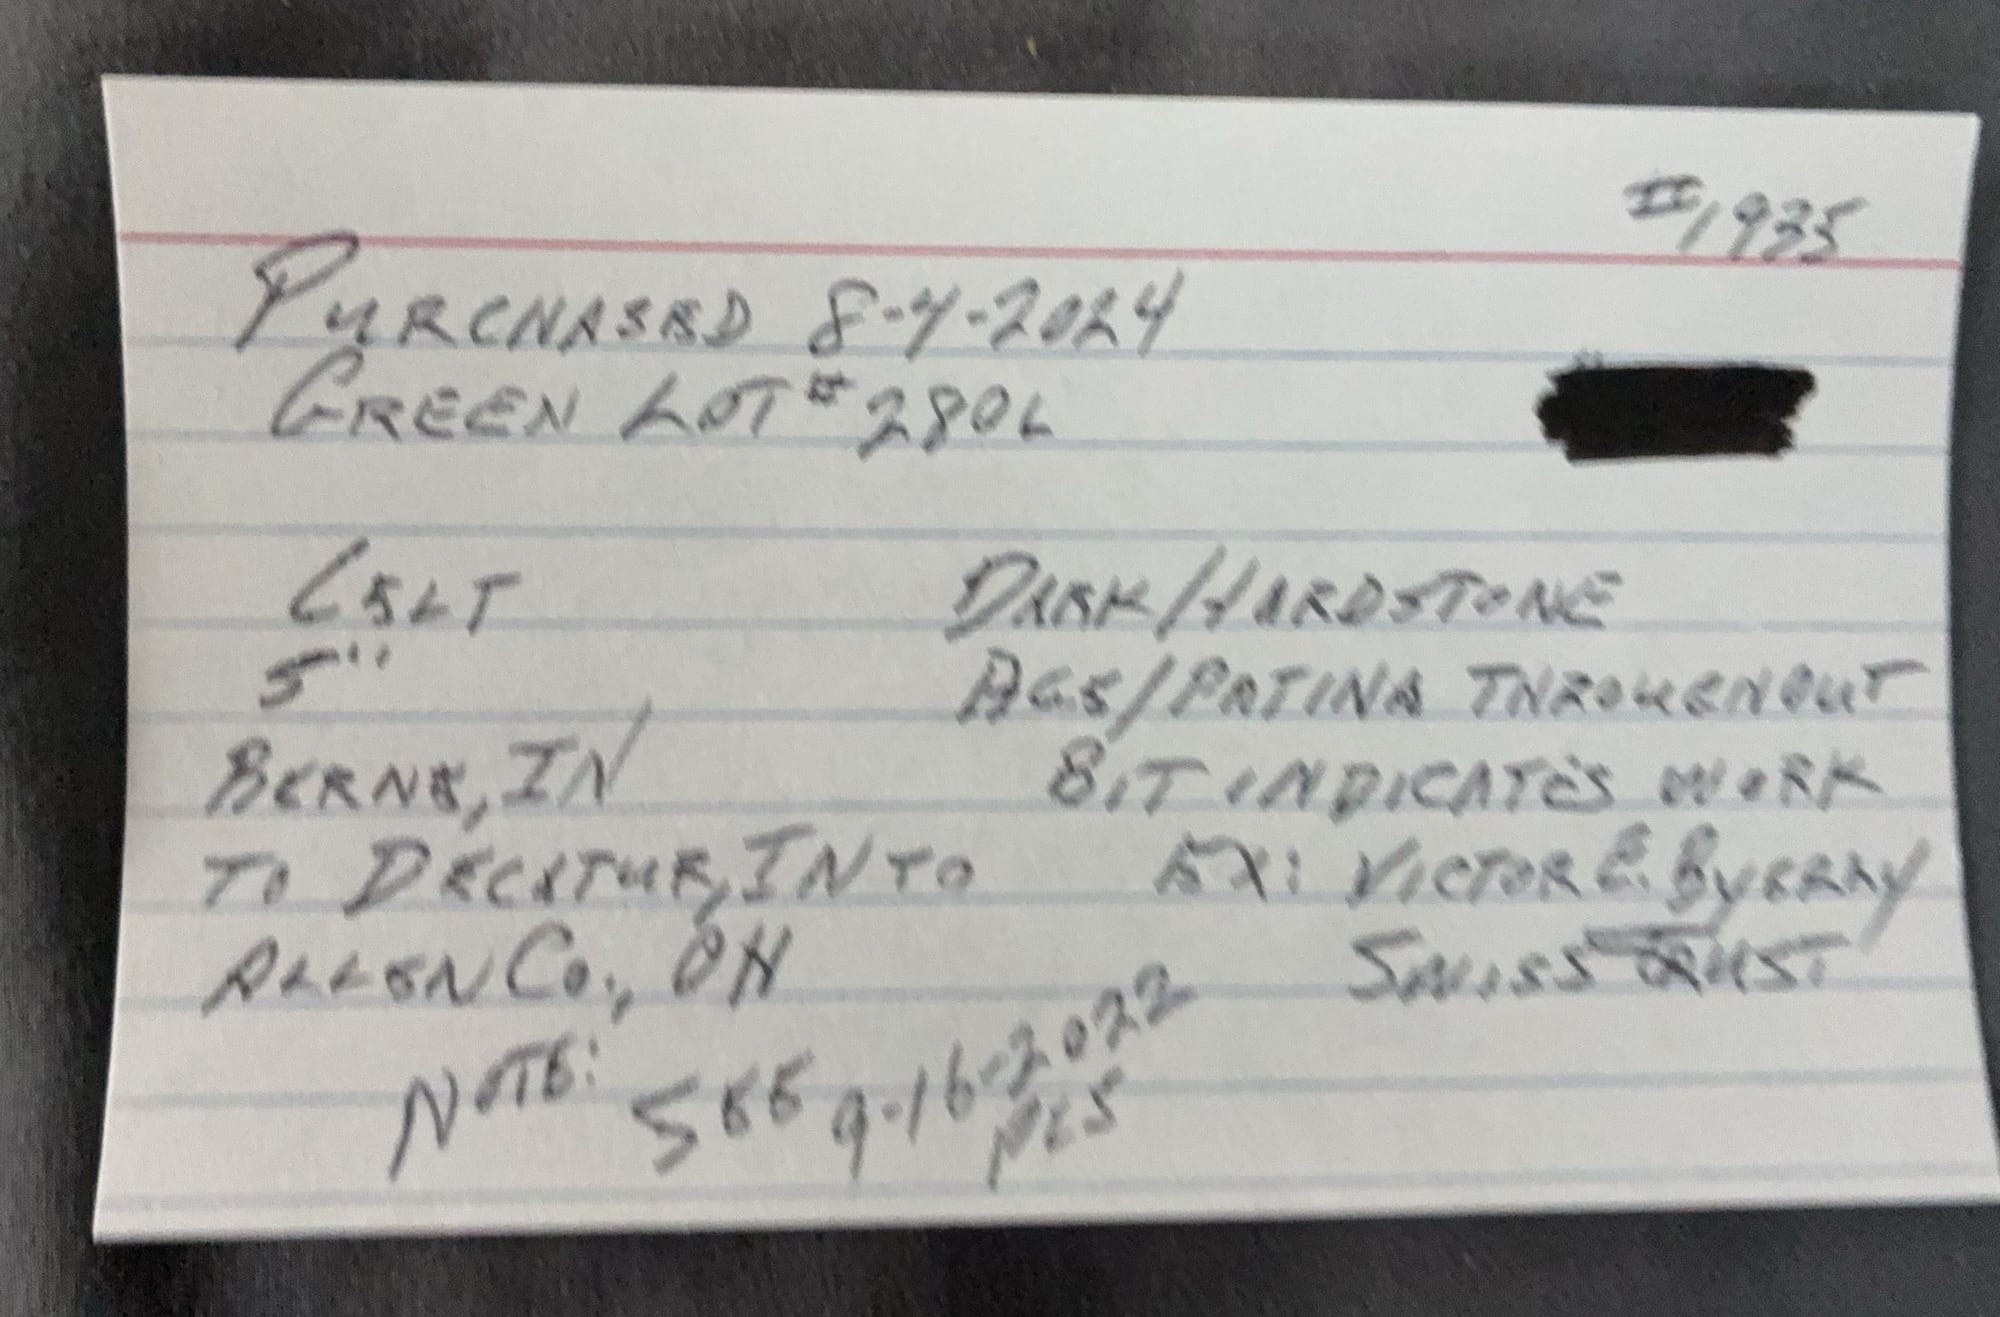 #1935
PURCHASED 8-4-2024
GREEN LOT # 280L
CELT
5"
BERNE, IN
TO DECATUR, IN TO
ALLEN CO., OH
DARK/HARDSTONE
AGE/PATINA THROUGHOUT
BIT INDICATES WORK
EX: VICTOR E. BYERRY
SWISS TRUST
NOTE: SEE 9-16-2022